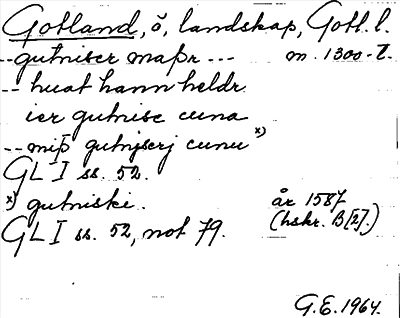 Gotland, ö, landskap, Gotl. l.
-- gutniser maþr --- m. 1300-t.
-- huat hann heldr
ier gutnisc cuna
-- miþ gutniscri cunu x)
GL I ss. 52.
x) gutniski.. år 1587
(hskr. B[2].)
GL I ss. 52, not 79.
G.E. 1964.